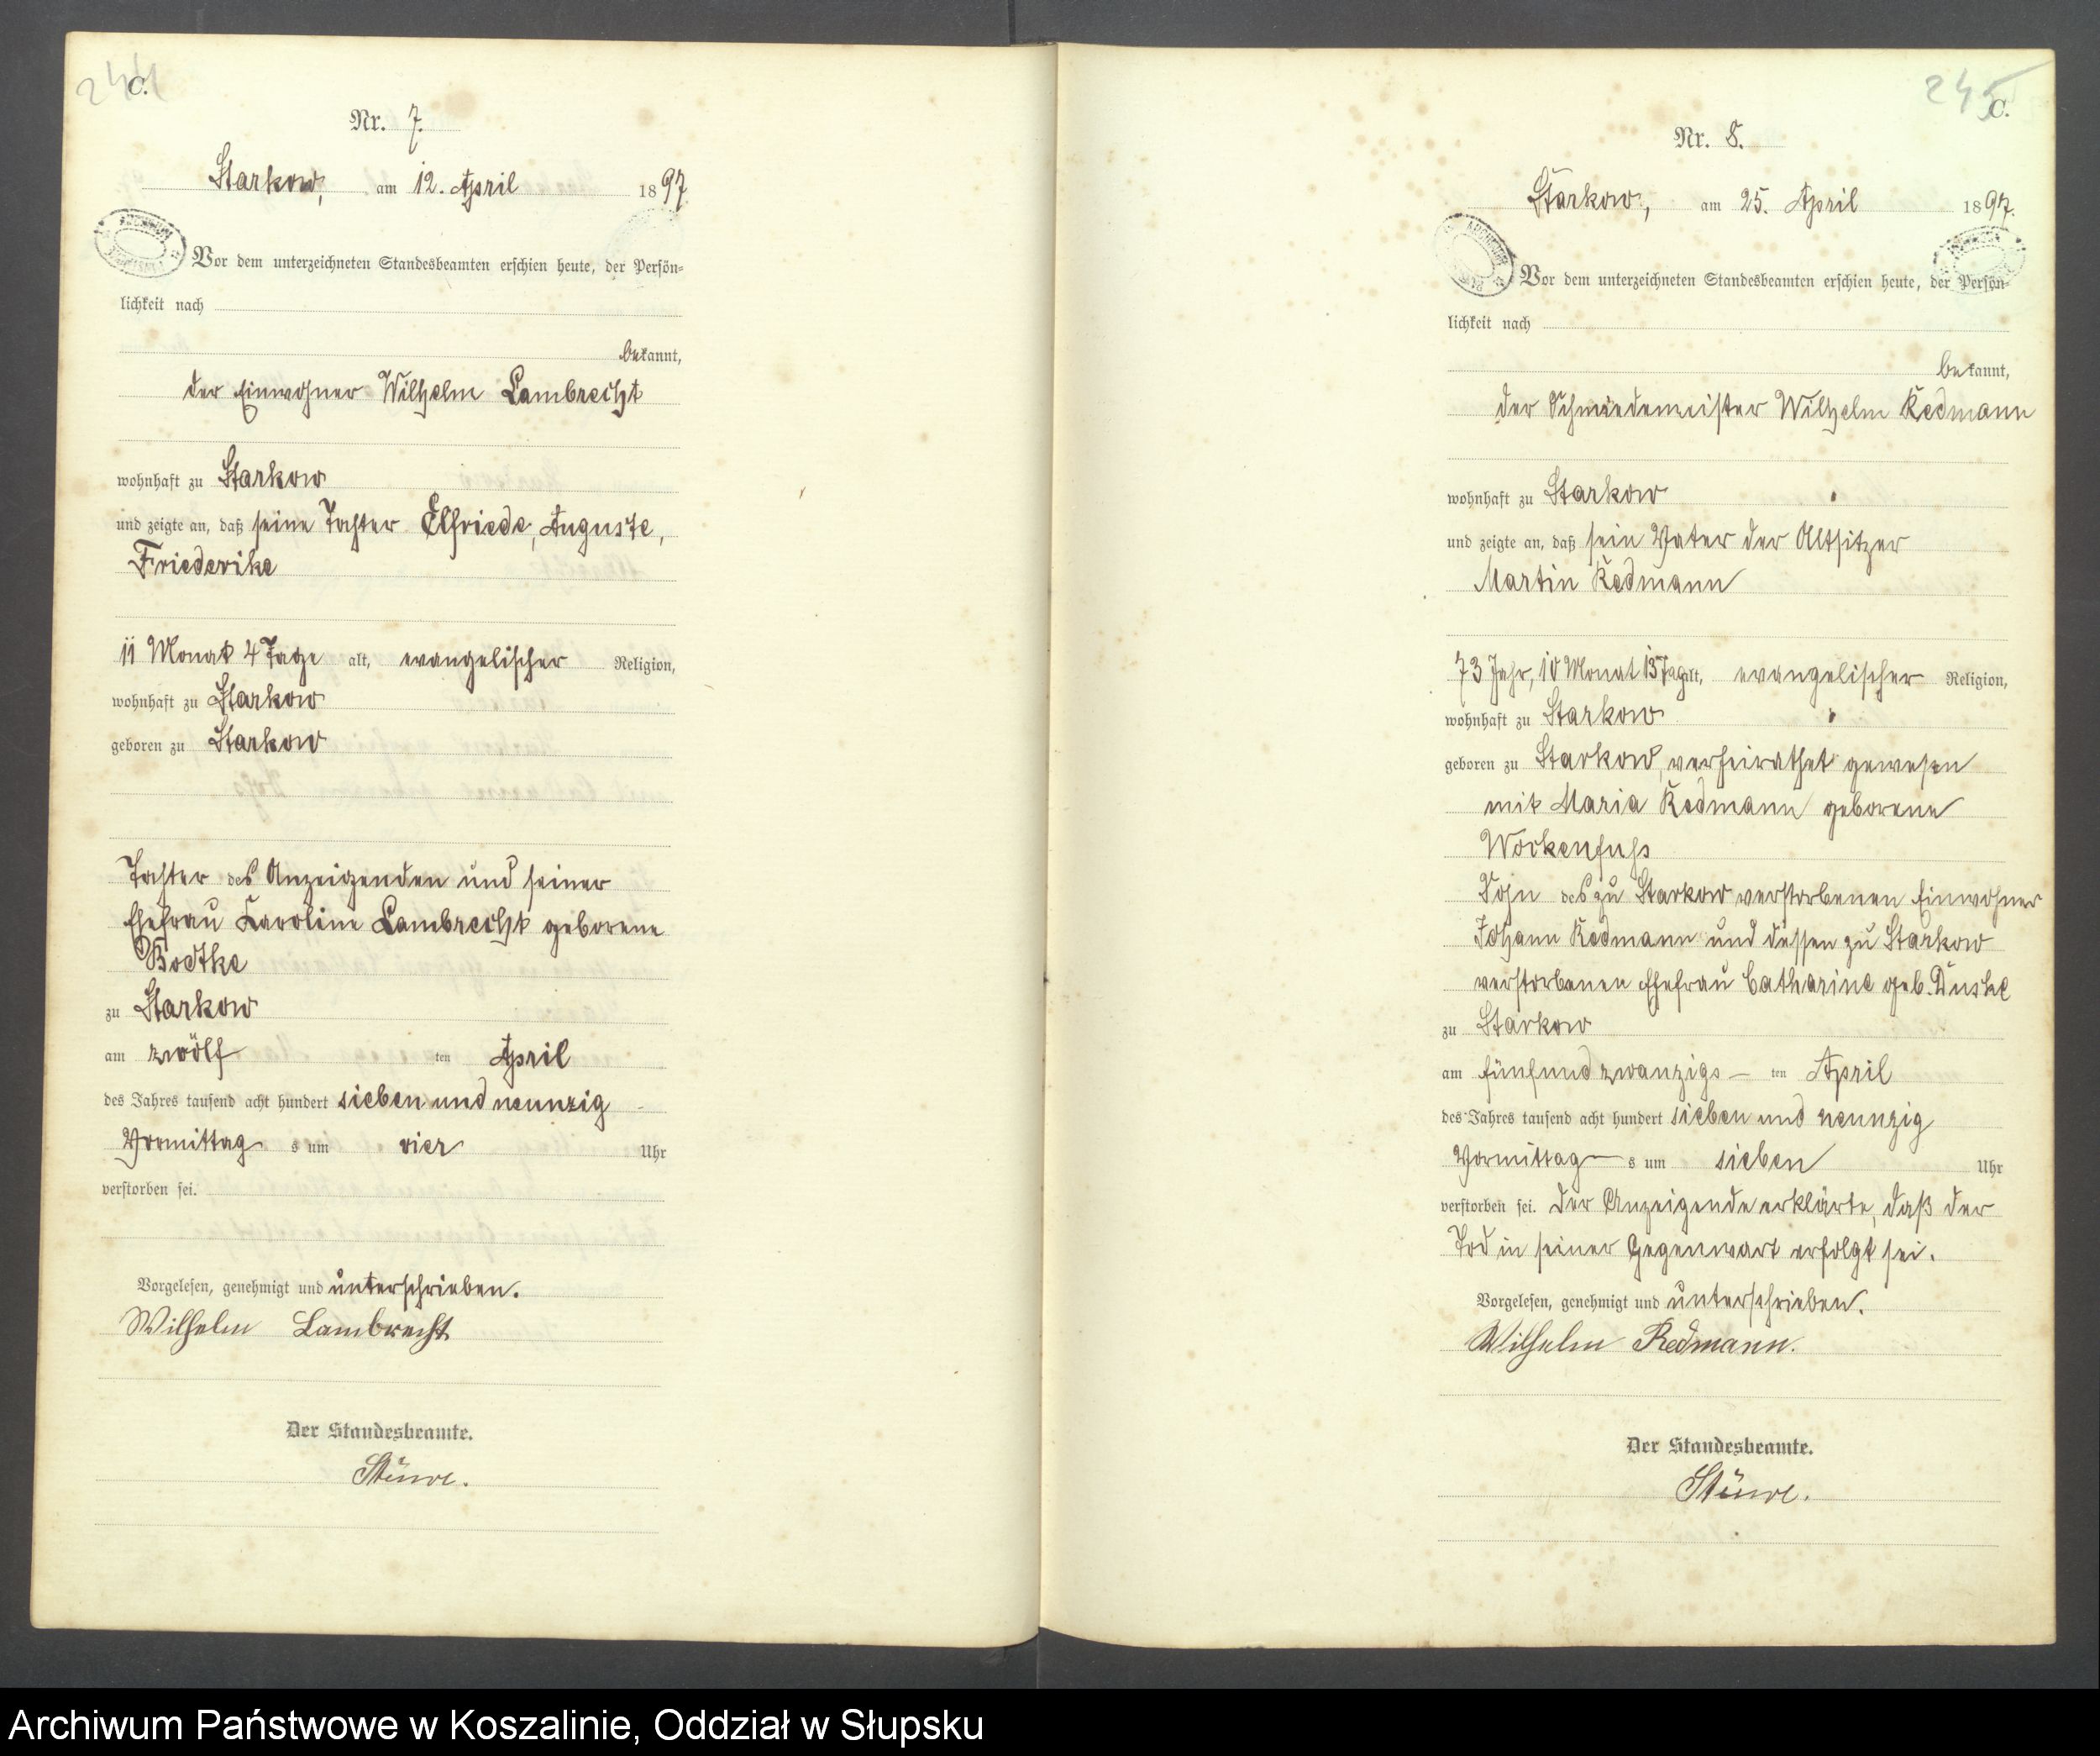 244
C.
Nr. 7.
Starkow, am 12. April 1897.
Vor dem unterzeichneten Standesbeamten erschien heute, der Persön-
lichkeit nach
bekannt,
der Einwohner Wilhelm Lambrecht
wohnhaft zu Starkow
und zeigte an, daß seine Tochter Elfriede, Auguste,
Friederike
11 Monat 4 Tage alt, evangelischer Religion,
wohnhaft zu Starkow
geboren zu Starkow
Tochter des Anzeigenden und seiner
Ehefrau Karoline Lambrecht geborene
Bodtke
zu Starkow
am zwölf ten April
des Jahres tausend acht hundert sieben und neunzig
Vormittag s um vier Uhr
verstorben sei.
Vorgelesen, genehmigt und unterschrieben.
Wilhelm Lambrecht
Der Standesbeamte.
Stüwe.
245
C.
Nr. 8.
Starkow, am 25. April 1897.
Vor dem unterzeichneten Standesbeamten erschien heute, der Persön-
lichkeit nach
bekannt,
der Schmiedemeister Wilhelm Redmann
wohnhaft zu Starkow
und zeigte an, daß sein Vater der Altsitzer
Martin Redmann
73 Jahr, 10 Monat 15 Tag alt, evangelischer Religion,
wohnhaft zu Starkow
geboren zu Starkow, verheirathet gewesen
mit Maria Redmann geborene
Wockenfuss
Sohn des zu Starkow verstorbenen Einwohner
Johann Redmann und dessen zu Starkow
verstorbenen Ehefrau Catharine geb. Duske
zu Starkow
am fünfundzwanzigs – ten April
des Jahres tausend acht hundert sieben und neunzig
Vormittag – s um sieben Uhr
verstorben sei. Der Anzeigende erklärte, daß der
Tod in seiner Gegenwart erfolgt sei.
Vorgelesen, genehmigt und unterschrieben.
Wilhelm Redmann.
Der Standesbeamte.
Stüwe.
Archiwum Państwowe w Koszalinie, Oddział w Słupsku